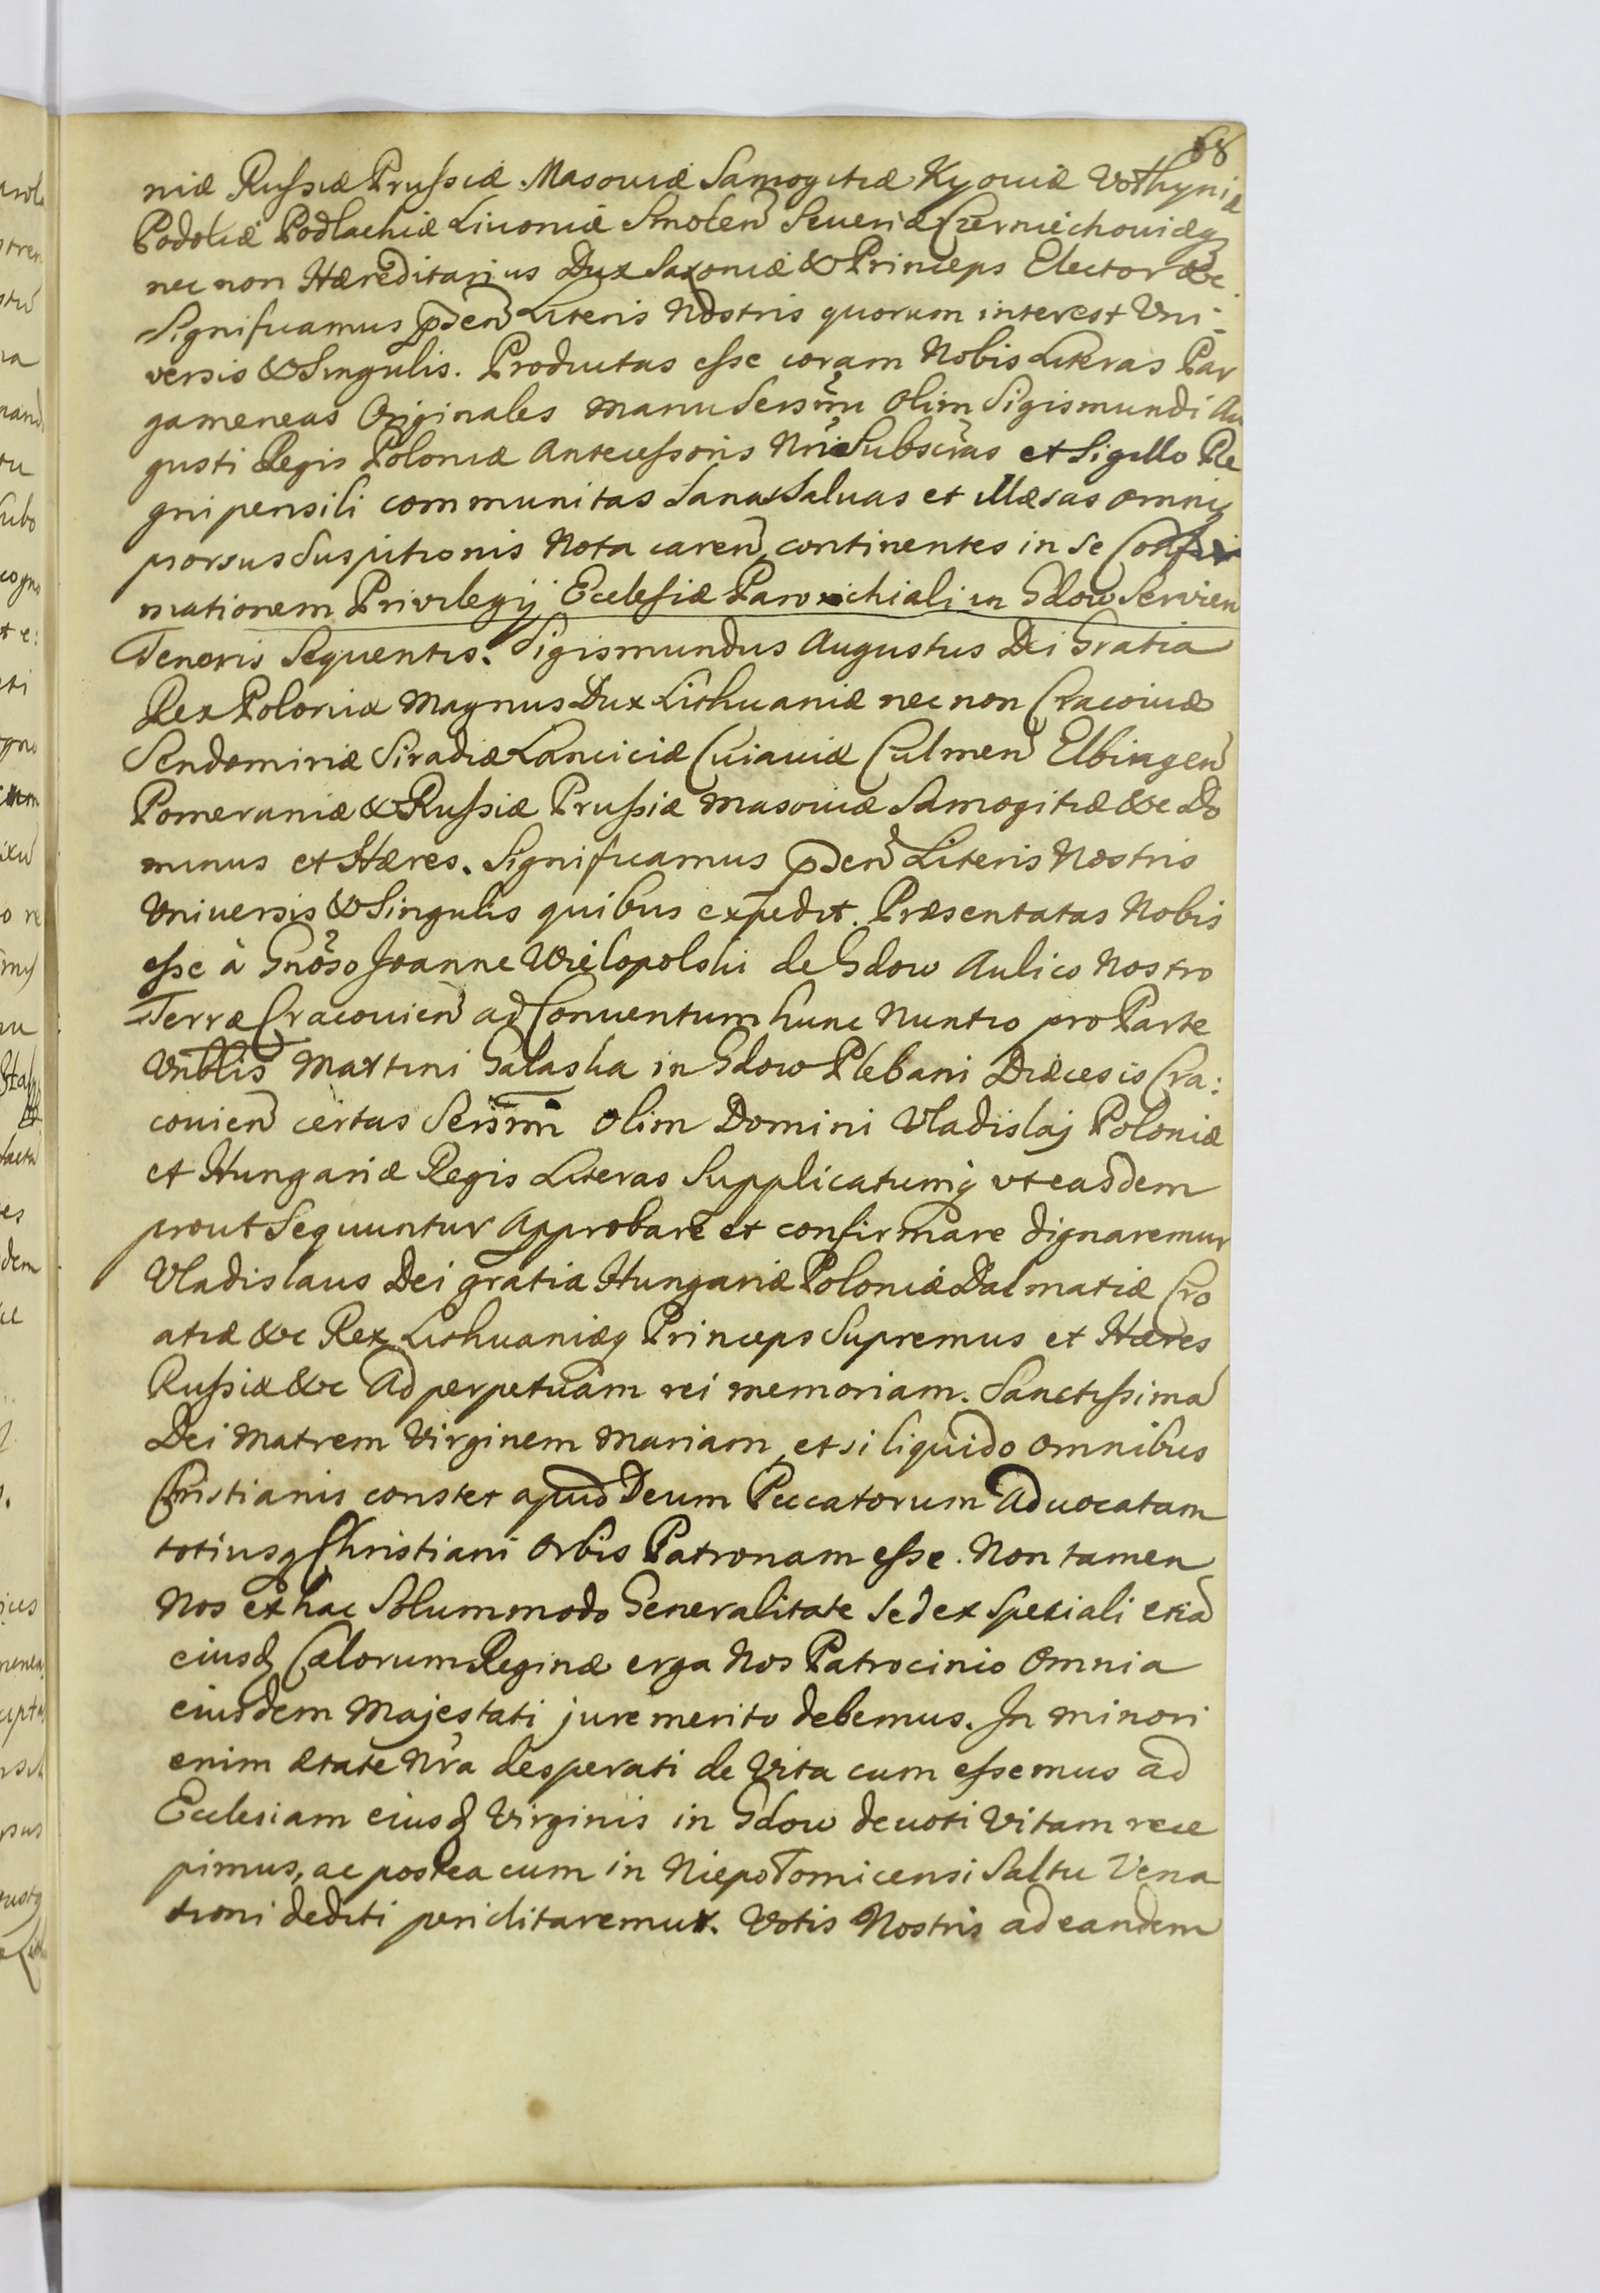 68
niæ Russiæ Prussiæ Masoviæ Samogitiæ Kyoviæ Volhyniæ
Podoliæ Podlachiæ Livoniæ Smolen Severiæ Czerniechoviæq
nec non Hæreditarius Dux Saxoniæ & Princeps Elector &c
Significamus pden Literis Nostris quorum interest Uni-
versis & Singulis. Productas esse coram Nobis Literas Par
gameneas Originales manu Serssmi olim Sigismundi Au
gusti Regis Poloniæ Antecessoris Nri Subscras et Sigillo Re
gni pensili communitas Sanas Salvas et illæsas omniq
prorsus Suspitionis Nota caren, continentes in Se Confir
mationem Privilegij Ecclesiæ Parochiali in Gdow Servien
Tenoris Sequentis. Sigismundus Augustus Dei Gratia
Rex Poloniæ Magnus Dux Lithuaniæ nec non Cracoviæ
Sendomiriæ Siradiæ Lanciciæ Cuiaviæ Culmen Elbingen
Pomeraniæ & Russiæ Prussiæ Masoviæ Samogitiæ &c Do
minus et Hæres. Significamus pden Literis Nostris
Universis & Singulis quibus expedit. Præsentatas Nobis
esse à Gnoso Joanne Wielopolski de Gdow Aulico Nostro
Terræ Cracovien ad Conventum hunc Nuntio pro Parte
Vnblis Martini Galaska in Gdow Plebani Diæcesis Cra:
covien certas Serssmi olim Domini Vladislaj Poloniæ
et Hungariæ Regis Literas Supplicatumq vt easdem
prout Sequuntur Approbare et confirmare dignaremur
Vladislaus Dei gratia Hungariæ Poloniæ Dalmatiæ Cro
atiæ &c Rex Lithuaniæq Princeps Supremus et Hæres
Russiæ &c Ad perpetuam rei memoriam. Sanctissima
Dei Matrem Virginem Mariam, etsi liquido omnibus
Cristianis constet apud Deum Peccatorum Aduocatam
totiusq Christiani Orbis Patronam esse. Non tamen
Nos ex hac Solummodo Generalitate Sed ex Speciali etia
eiusd Cælorum Reginæ erga Nos Patrocinio Omnia
eiusdem Majestati jure merito debemus. In minori
enim ætate Nra desperati de Vita cum essemus ad
Ecclesiam eiusd Virginis in Gdow devoti Vitam rece
pimus, ac postea cum in Niepotomicensi Saltu Vena
tioni dediti periclitaremur. Votis Nostris ad eandem